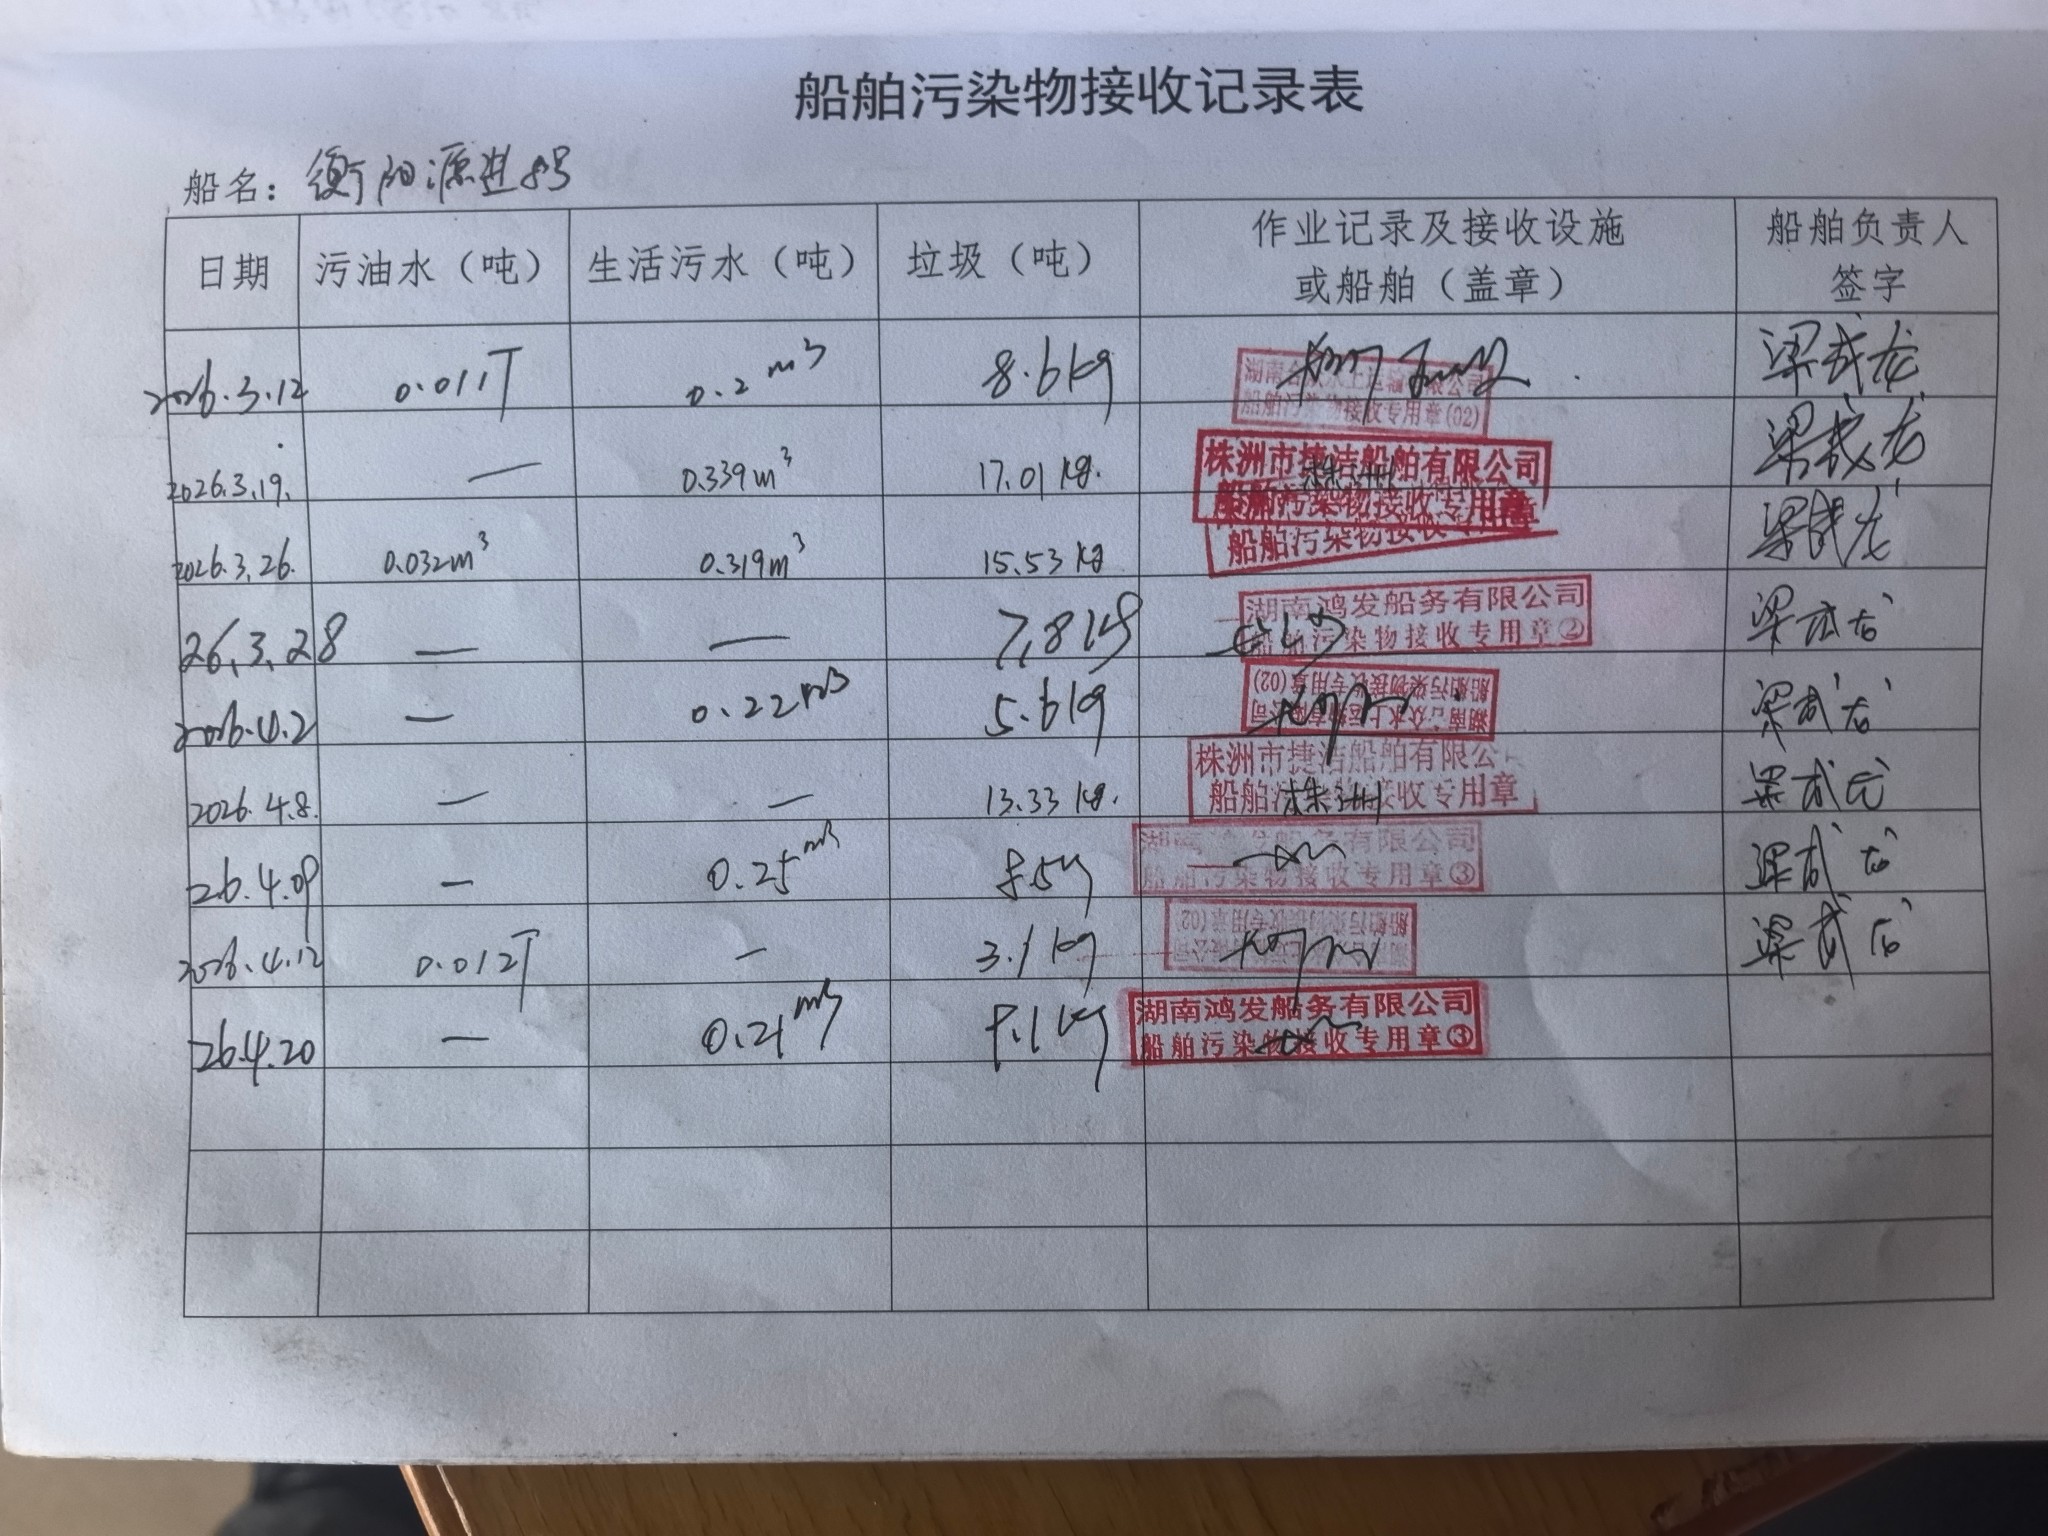 船舶污染物接收记录表
船名：衡阳源进8号
日期 污油水（吨） 生活污水（吨） 垃圾（吨） 作业记录及接收设施或船舶（盖章） 船舶负责人签字
2026.3.12 0.011T 0.2m³ 8.6kg 船舶污染物接收专用章(02) 梁成龙
2026.3.19. — 0.339m³ 17.01kg. 株洲市捷洁船舶有限公司 船舶污染物接收专用章 株洲 梁成龙
2026.3.26. 0.032m³ 0.319m³ 15.53kg 船舶污染物接收专用章 梁成龙
26.3.28 — — 7.8kg 湖南鸿发船务有限公司 船舶污染物接收专用章② 梁成龙
2026.4.2 — 0.22m³ 5.6kg 船舶污染物接收专用章(02) 梁成龙
2026.4.8. — — 13.33kg. 株洲市捷洁船舶有限公司 船舶污染物接收专用章 株洲 梁成龙
26.4.09 — 0.25m³ 湖南鸿发船务有限公司 船舶污染物接收专用章③ 梁成龙
2026.4.12 0.012T — 3.1kg 船舶污染物接收专用章(02) 梁成龙
26.4.20 — 0.21m³ 湖南鸿发船务有限公司 船舶污染物接收专用章③